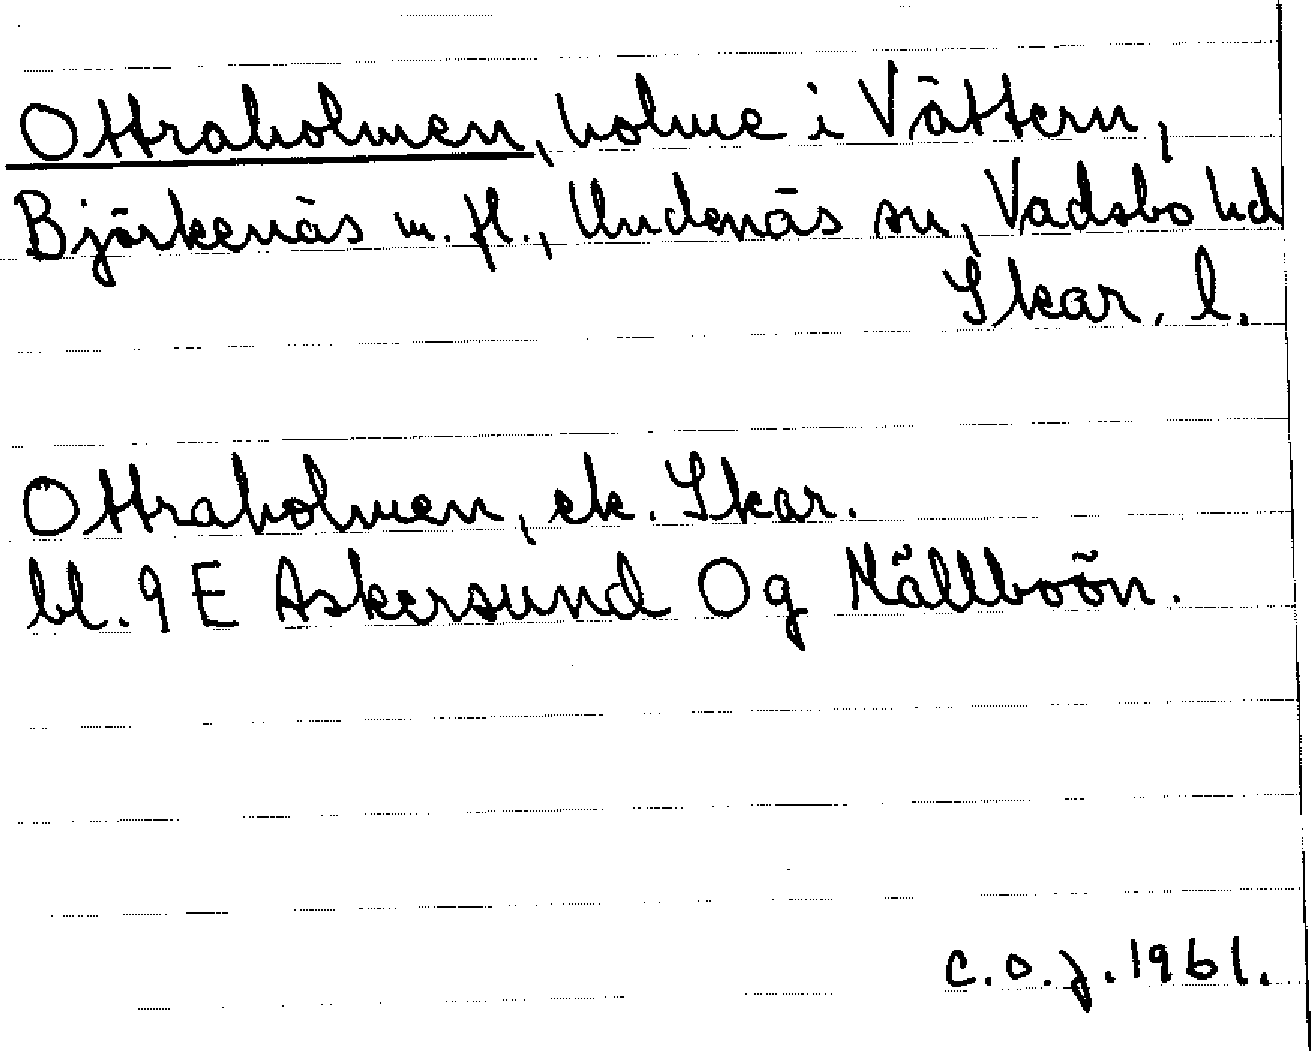 Ottraholmen, holme i Vättern,
Björkenäs m. fl., Undenäs sn, Vadsbo hd
Skar. l.
Ottraholmen, ek. Skar.
bl. 9 E Askersund Og Kållboön.
C.O.J. 1961.